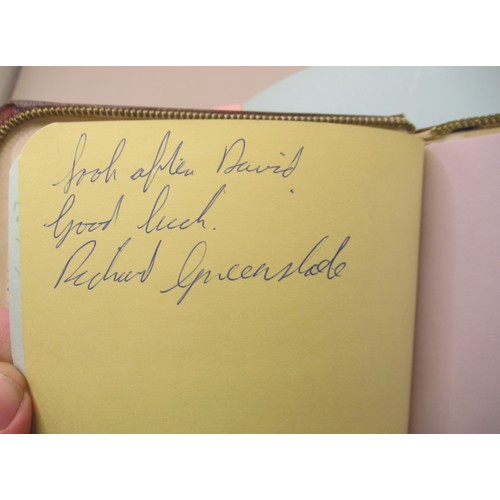 Look after David
Good luck.
Richard Greenslade